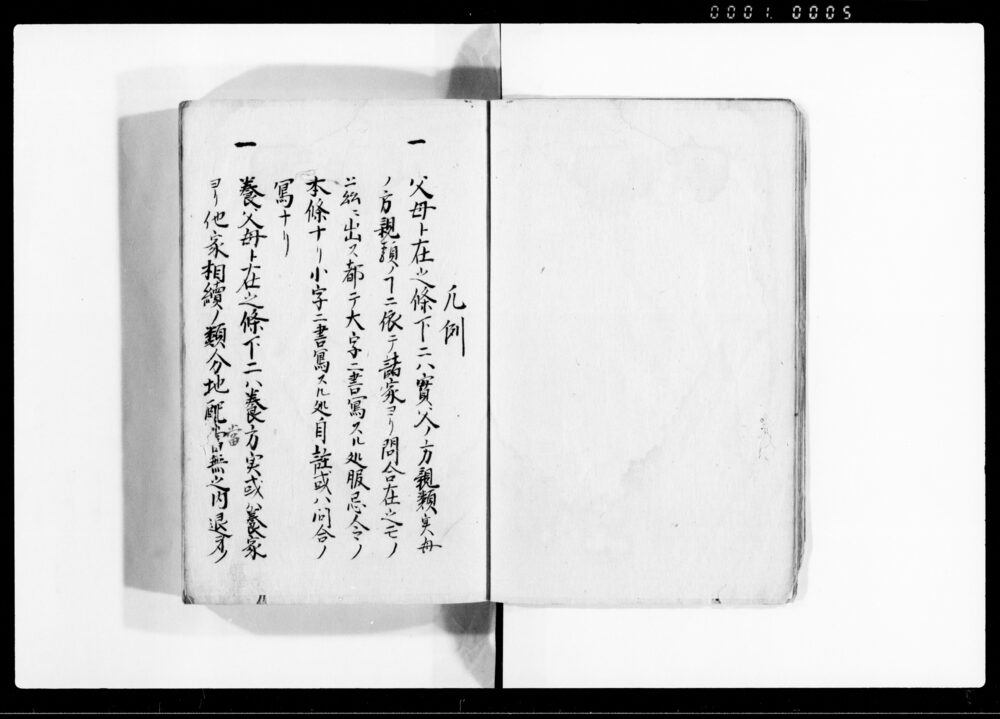 0001. 0005
凡例
一 父母ト在之條下ニハ實父ノ方親類実母
ノ方親類ノヿニ依テ諸家ヨリ問合在之モノ
ニ出ス都テ大字ニ書寫スル処服忌令ノ
本條ナリ小字ニ書寫スル処自註或ハ問合ノ
寫ナリ
一 養父母ト在之條下ニハ養方実或ハ養家
ヨリ他家相續ノ類分地配當無之内退身ノ
當